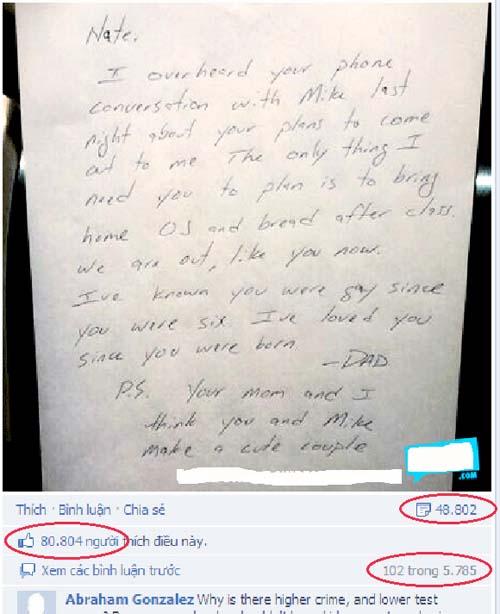 Nate.
I overheard your phone
conversation with Mike last
night about your plans to come
out to me The only thing I
need you to plan is to bring
home OJ and bread after class.
we are out, like you now.
I've known you were gay since
you were six I've loved you
since you were born
-DAD
P.S. Your mom and I
think you and Mike
make a cute couple
.COM
Thích · Bình luận · Chia sẻ
48.802
80.804 người thích điều này.
Xem các bình luận trước
102 trong 5.785
Abraham Gonzalez Why is there higher crime, and lower test